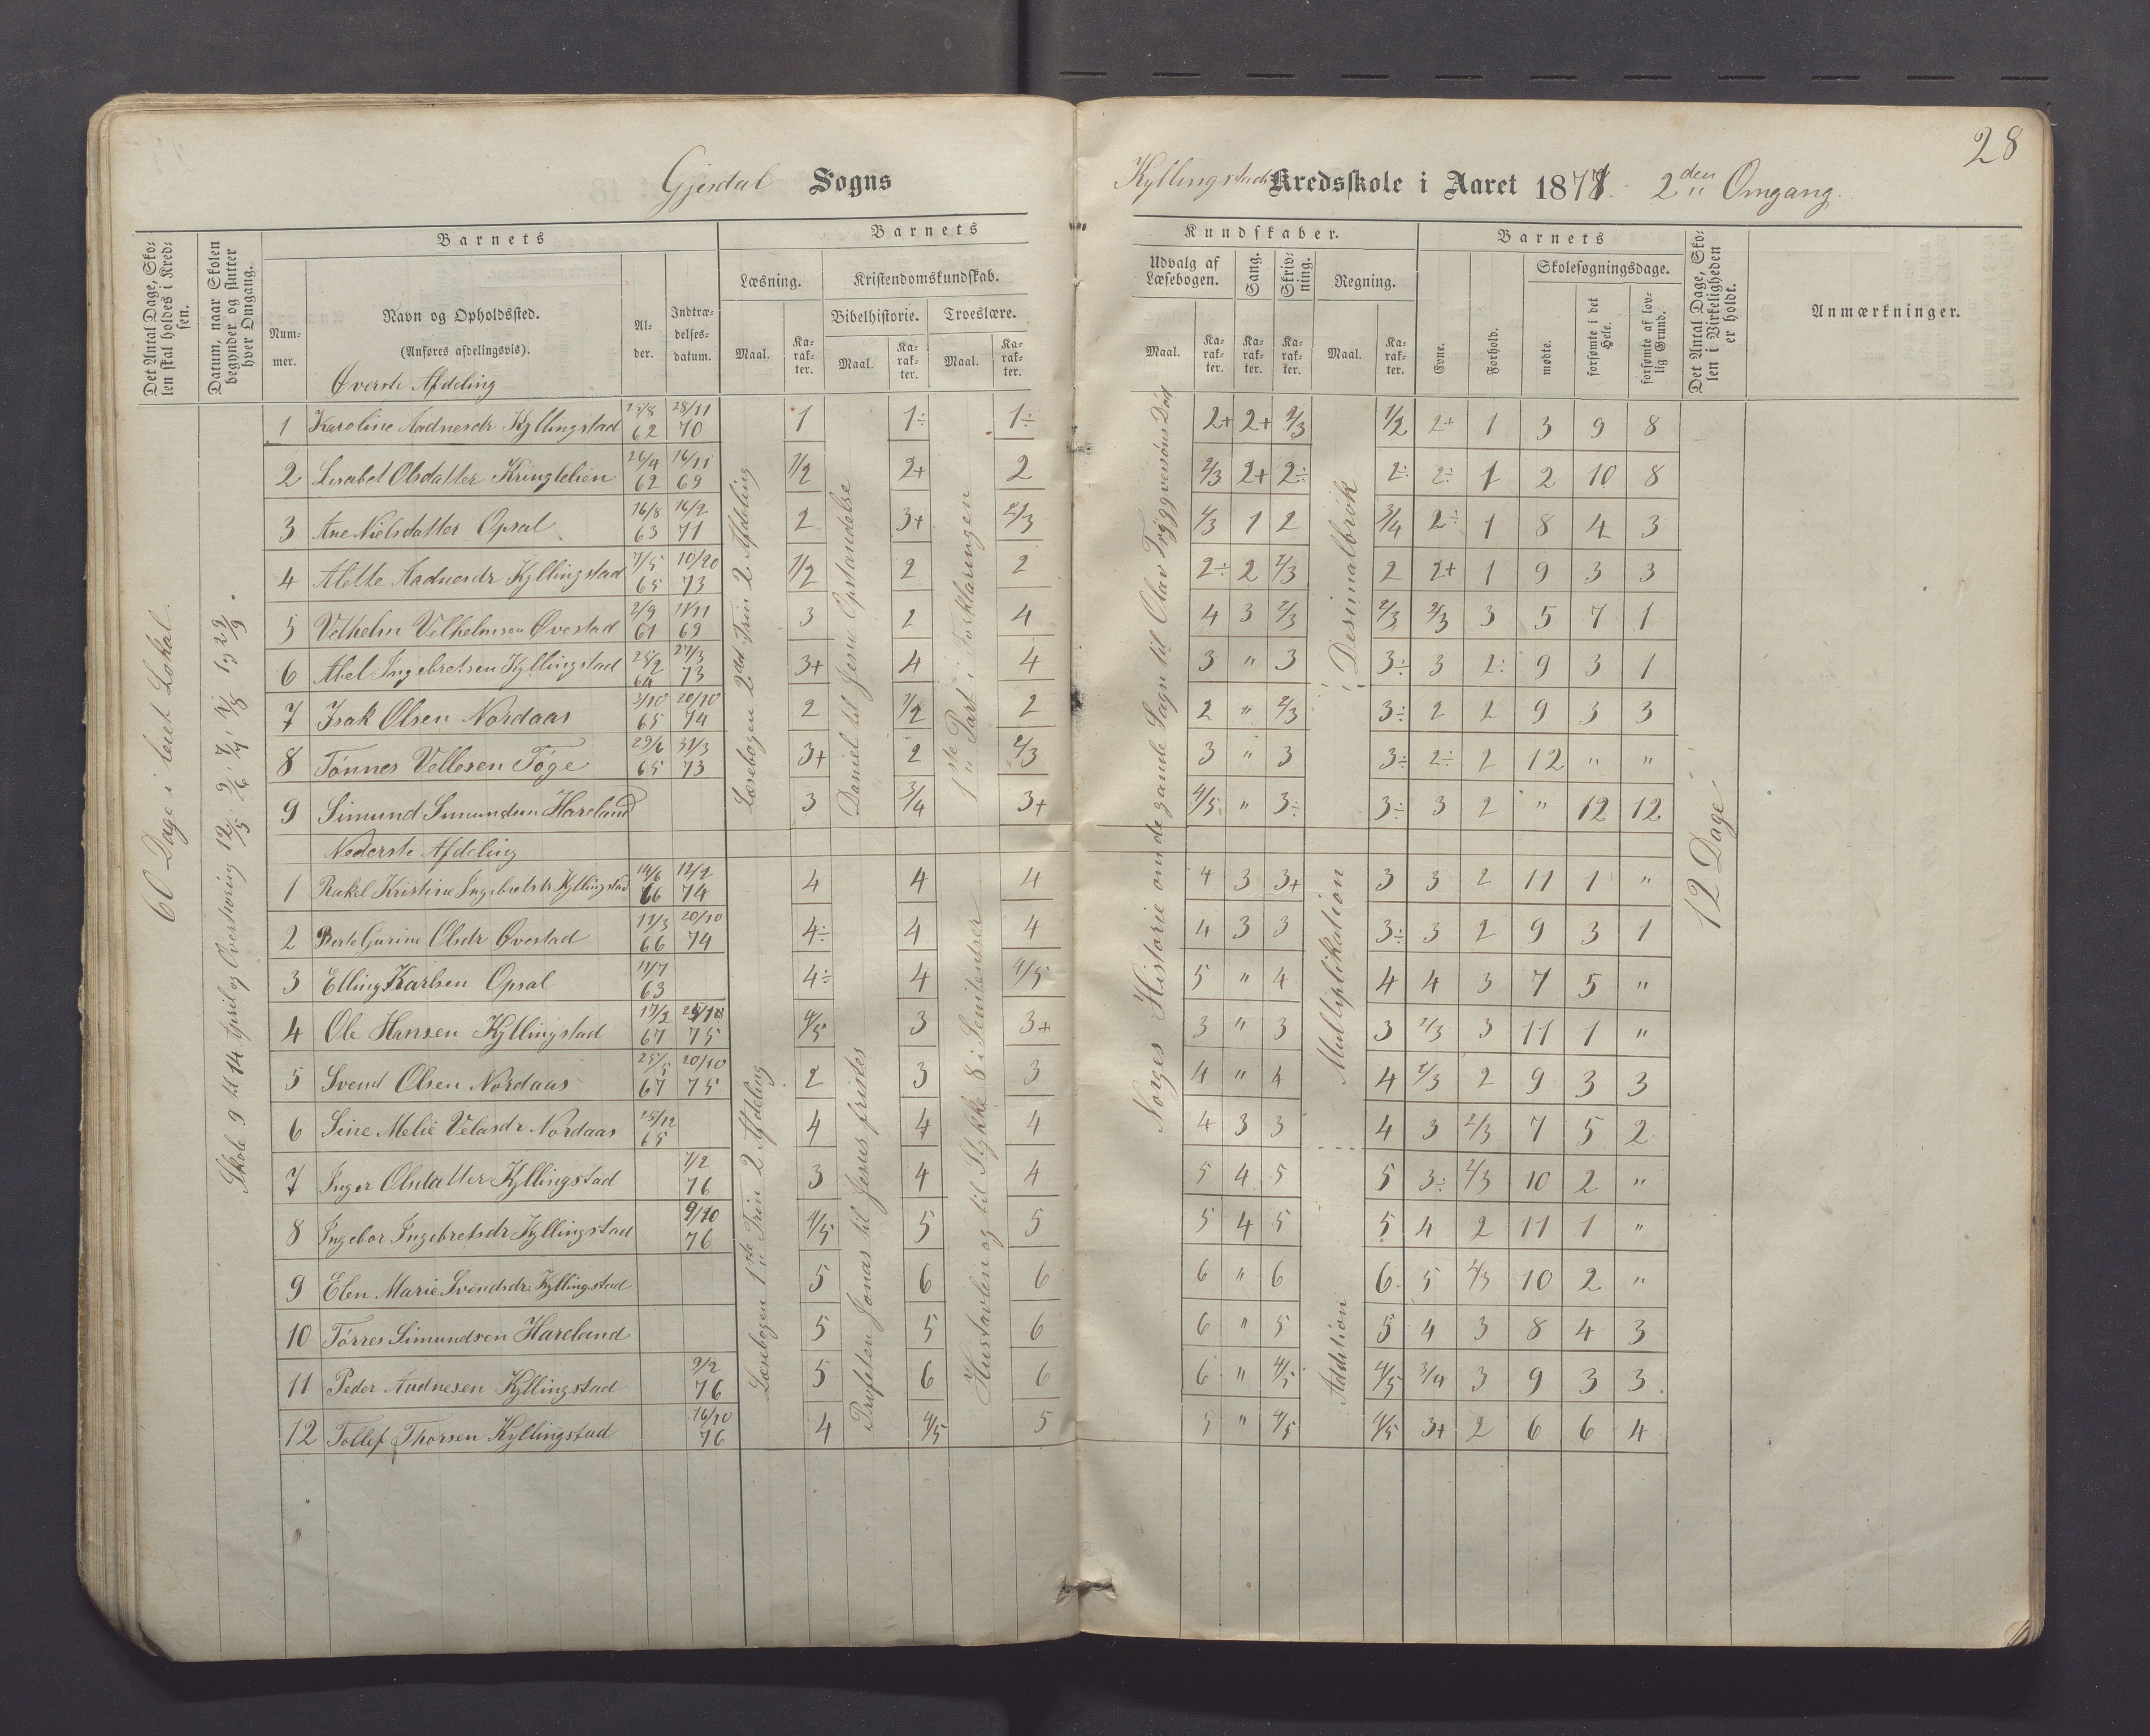 28
Gjesdal Sogns Kyllingstad Kredsskole i Aaret 1877. 2den Omgang.
Det Antal Dage, Skolen skal holdes i Kredsen.
Datum, naar Skolen begynder og slutter hver Omgang.
Barnets
Nummer.
Navn og Opholdssted.
(Anføres afdelingsvis).
Alder.
Indtrædelsesdatum.
Barnets
Læsning.
Maal.
Karakter.
Kristendomskundskab.
Bibelhistorie.
Maal.
Karakter.
Troeslære.
Maal.
Karakter.
Kundskaber.
Udvalg af Læsebogen.
Maal.
Karakter.
Sang.
Karakter.
Skrivning.
Karakter.
Regning.
Maal.
Karakter.
Barnets
Evne.
Forhold.
Skolesøgningsdage.
mødte.
forsømte i det Hele.
forsømte af lovlig Grund.
Det Antal Dage, Skolen i Virkeligheden er holdt.
Anmærkninger.
60 Dage i leiet Lokal.
Skole 9 til 14 April og Overhøring 12/5 9/6 7/7 4/8 1/9 29/9.
Øverste Afdeling
1 Karoline Aadnesdr Kyllingstad 28/8 62 28/11 70 1 1÷ 1÷ 2+ 2+ 2/3 1/2 2+ 1 3 9 8
2 Lisabet Olsdatter Kringlelien 26/4 62 16/11 69 1/2 2+ 2 2/3 2+ 2÷ 2÷ 2÷ 1 2 10 8
3 Ane Nielsdatter Opsal 16/8 63 16/2 71 2 3+ 2/3 2/3 1 2 3/4 2÷ 1 8 4 3
4 Alette Aadnesdr Kyllingstad 7/5 65 10/20 73 1/2 2 2 2÷ 2 2/3 2 2+ 1 9 3 3
5 Velhelm Velhelmsen Øvestad 2/9 61 11/11 69 3 2 4 4 3 2/3 2/3 2/3 3 5 7 1
6 Abel Ingebretsen Kyllingstad 25/2 64 27/3 73 3+ 4 4 3 " 3 3÷ 3 2÷ 9 3 1
7 Isak Olsen Nordaas 3/10 65 20/10 74 2 1/2 2 2 " 2/3 3÷ 2 2 9 3 3
8 Tønnes Vellesen Tøge 29/6 65 31/3 73 3+ 2 2/3 3 " 3 3÷ 2÷ 2 12 " "
9 Simund Simundsen Hareland 3 3/4 3+ 4/5 " 3÷ 3÷ 3 2 " 12 12
Læsebogen 2det Trin 2. Afdeling
Daniel til Jesu Opstandelse
1ste Part i Forklaringen
Norges Historie omdegaande Sagn til Olav Tryggvesøns Død
i Desimalbrøk
12 Dage
Nederste Afdeling
1 Rakel Kristine Ingebretsdr Kyllingstad 14/6 66 12/2 74 4 4 4 4 3 3+ 3 3 2 11 1 "
2 Berte Gurine Olsdr Øvestad 11/3 66 20/10 74 4÷ 4 4 4 3 3 3÷ 3 2 9 3 1
3 Elling Karlsen Opsal 12/7 63 4÷ 4 4/5 5 " 4 4 4 3 7 5 "
4 Ole Hansen Kyllingstad 17/2 67 75 4/5 3 3+ 3 " 3 3 2/3 3 11 1 "
5 Svend Olsen Nordaas 25/5 67 20/10 75 2 3 3 4 " 4 4 2/3 2 9 3 3
6 Sine Melie Velasdr Nordaas 25/12 65 4 4 4 4 3 3 4 3 2/3 7 5 2
7 Inger Olsdatter Kyllingstad 7/2 76 3 4 4 5 4 5 5 3÷ 2/3 10 2 "
8 Ingebor Ingebretsdr Kyllingstad 9/10 76 4/5 5 5 5 4 5 5 4 2 11 1 "
9 Elen Marie Svendsdr Kyllingstad 5 6 6 6 " 6 6 5 2/3 10 2 "
10 Tørres Simundsen Hareland 5 5 6 6 " 5 5 4 3 8 4 3
11 Peder Aadnesen Kyllingstad 9/2 76 5 6 6 6 " 4/5 4/5 3/4 3 9 3 3
12 Tollef Thorsen Kyllingstad 16/10 76 4 4/5 5 5 " 4/5 4/5 3+ 2 6 6 4
Læsebogen 1ste Trin 2 Afdeling
Profeten Jonas til Jesus fristes
Hustavlen og til Stykke 8 i Senitenser
Multiplikation
Addition